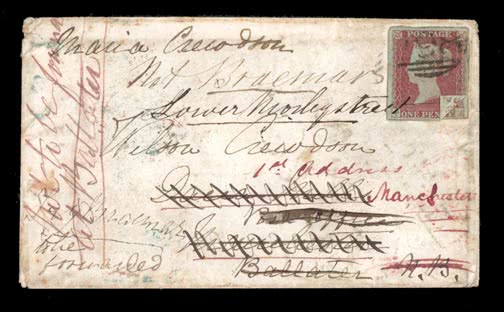 Maria Crewdson
Not Braemar
Lower Mosley street
Wilson Crewdson
1st Address
Manchester
Post office
Ballater
N.B.
to be
forwarded
Not to be found
at Ballater
POSTAGE
ONE PEN